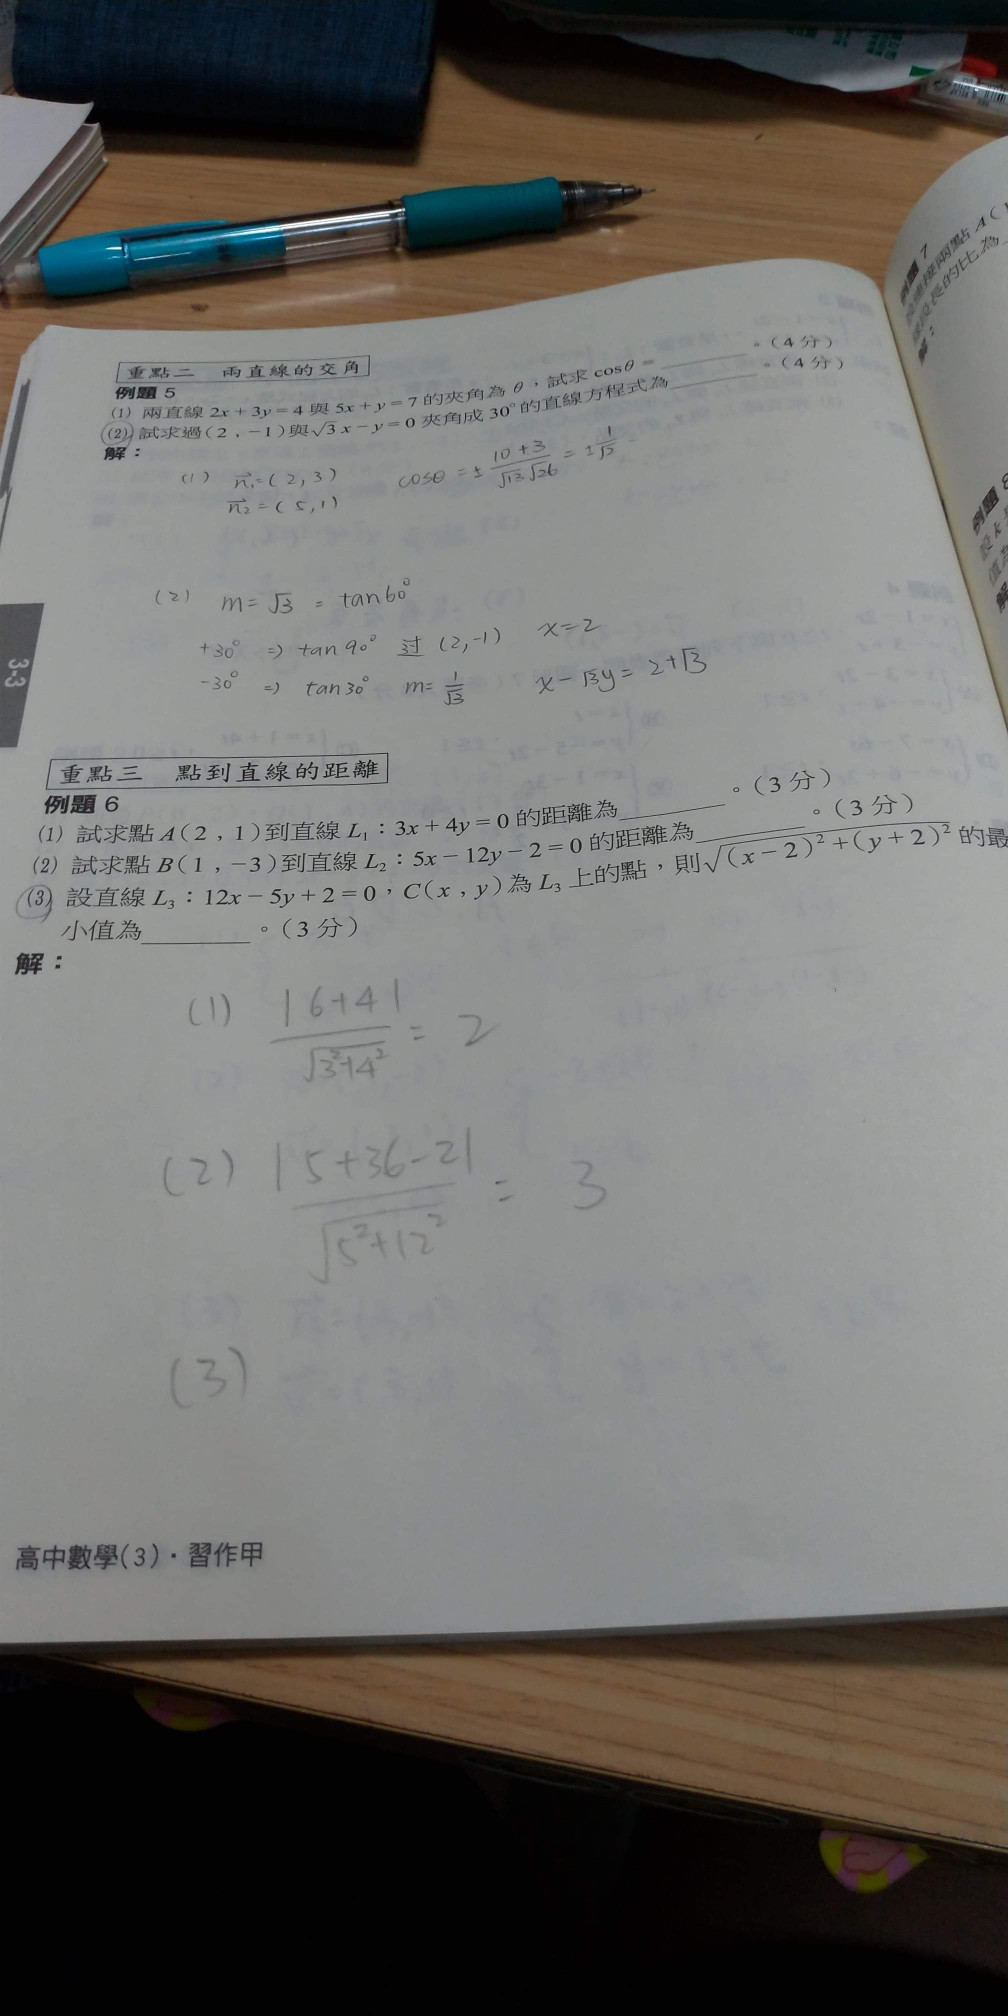 重點二 兩直線的交角
例題 5
(1) 兩直線 2x+3y=4 與 5x+y=7 的夾角為 θ，試求 cosθ=________。(4 分)
(2) 試求過(2,-1)與√3x-y=0 夾角成 30°的直線方程式為________。(4 分)
解：
(1) n₁=(2,3) cosθ=±(10+3)/(√13√26)=±1/√2
n₂=(5,1)
(2) m=√3=tan60°
+30° ⇒ tan90° 过(2,-1) x=2
-30° ⇒ tan30° m=1/√3 x-√3y=2+√3
3-3
重點三 點到直線的距離
例題 6
(1) 試求點 A(2,1)到直線 L₁：3x+4y=0 的距離為________。(3 分)
(2) 試求點 B(1,-3)到直線 L₂：5x-12y-2=0 的距離為________。(3 分)
(3) 設直線 L₃：12x-5y+2=0，C(x,y)為 L₃ 上的點，則√((x-2)²+(y+2)²) 的最
小值為________。(3 分)
解：
(1) |6+4|/√(3²+4²)=2
(2) |5+36-2|/√(5²+12²)=3
(3)
高中數學(3)·習作甲
例題 7
兩點 A(
長的比為
解：
例題 8
設 k
解